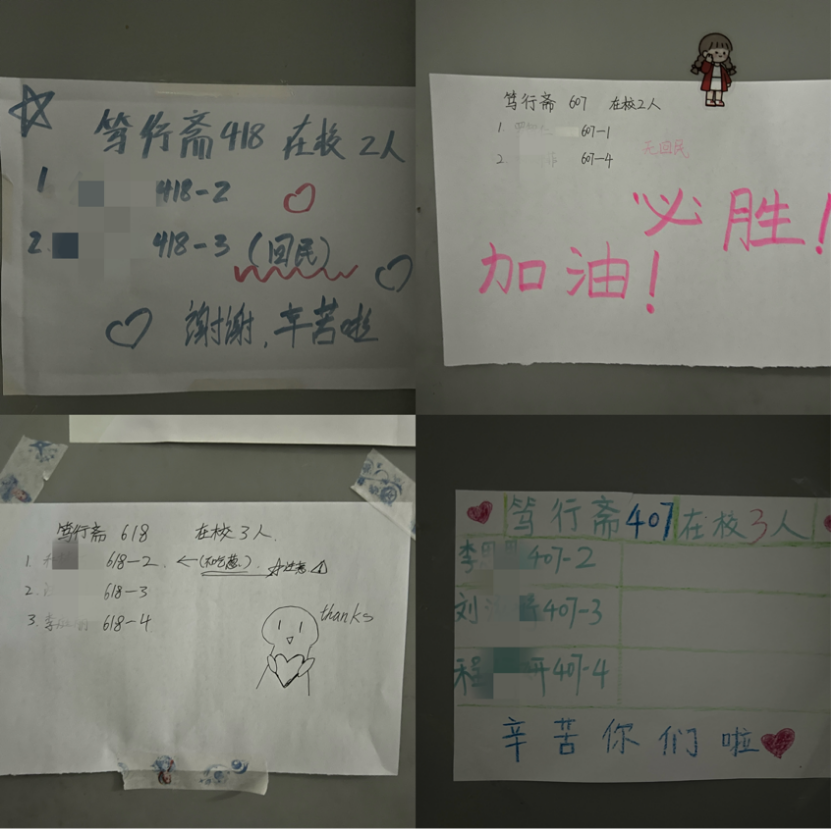 笃行斋418 在校2人
1 418-2
2. 418-3 (回民)
謝谢,辛苦啦
笃行斋 607 在校2人
1 607-1
2. 607-4 无回民
必胜!
加油!
笃行斋 618 在校3人.
1. 618-2. ←(不吃葱).
2. 618-3
3. 李 618-4
thanks
笃行斋407在校3人
李 407-2
刘 407-3
程 开407-4
辛苦你们啦